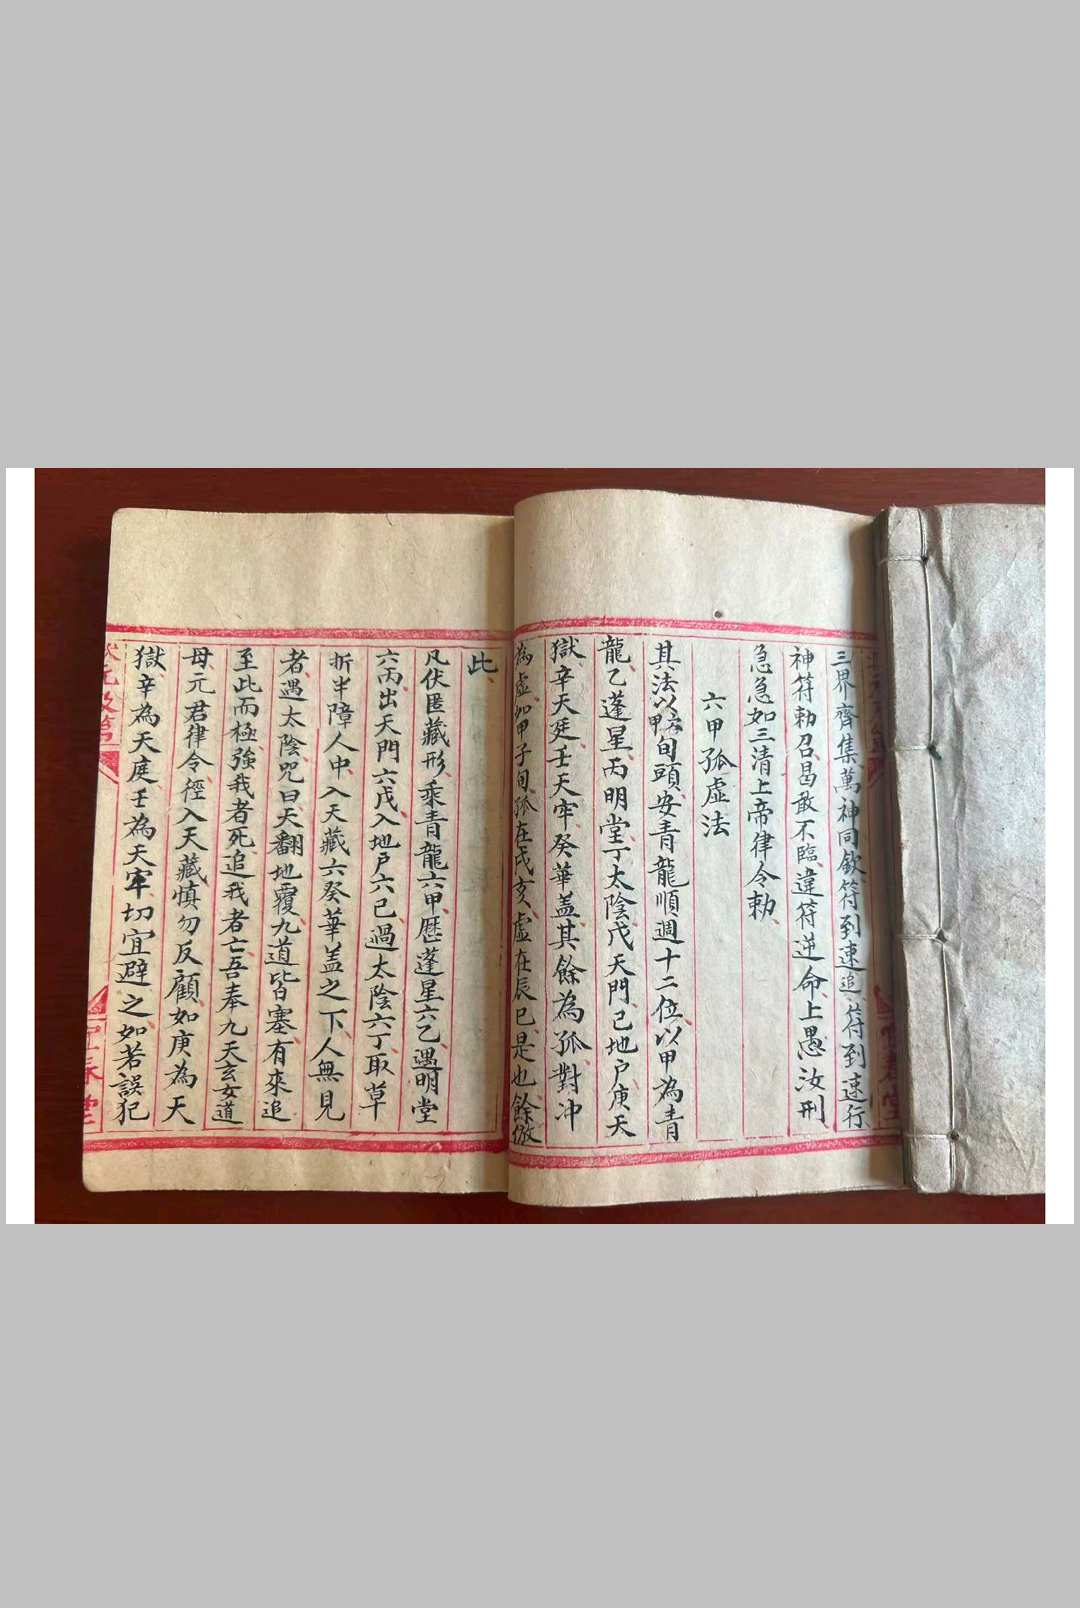 三界齊集萬神同欽符到速追符到速行
神符勅召曷敢不臨違符逆命上愚汝刑
急急如三清上帝律令勅
六甲孤虛法
其法以六甲旬頭安青龍順週十二位以甲為青
龍乙蓬星丙明堂丁太陰戊天門己地户庚天
獄辛天廷壬天牢癸華盖其餘為孤對冲
為虛如甲子旬孤在戌亥虛在辰巳是也餘倣
此
凡伏匿藏形乘青龍六甲歷蓬星六乙過明堂
六丙出天門六戊入地户六己過太陰六丁取草
折半障人中入天藏六癸華盖之下人無見
者過太陰咒曰天翻地覆九道皆塞有來追
至此而極強我者死追我者亡吾奉九天玄女道
母元君律令徑入天藏慎勿反顧如庚為天
獄辛為天庭壬為天牢切宜避之如若誤犯